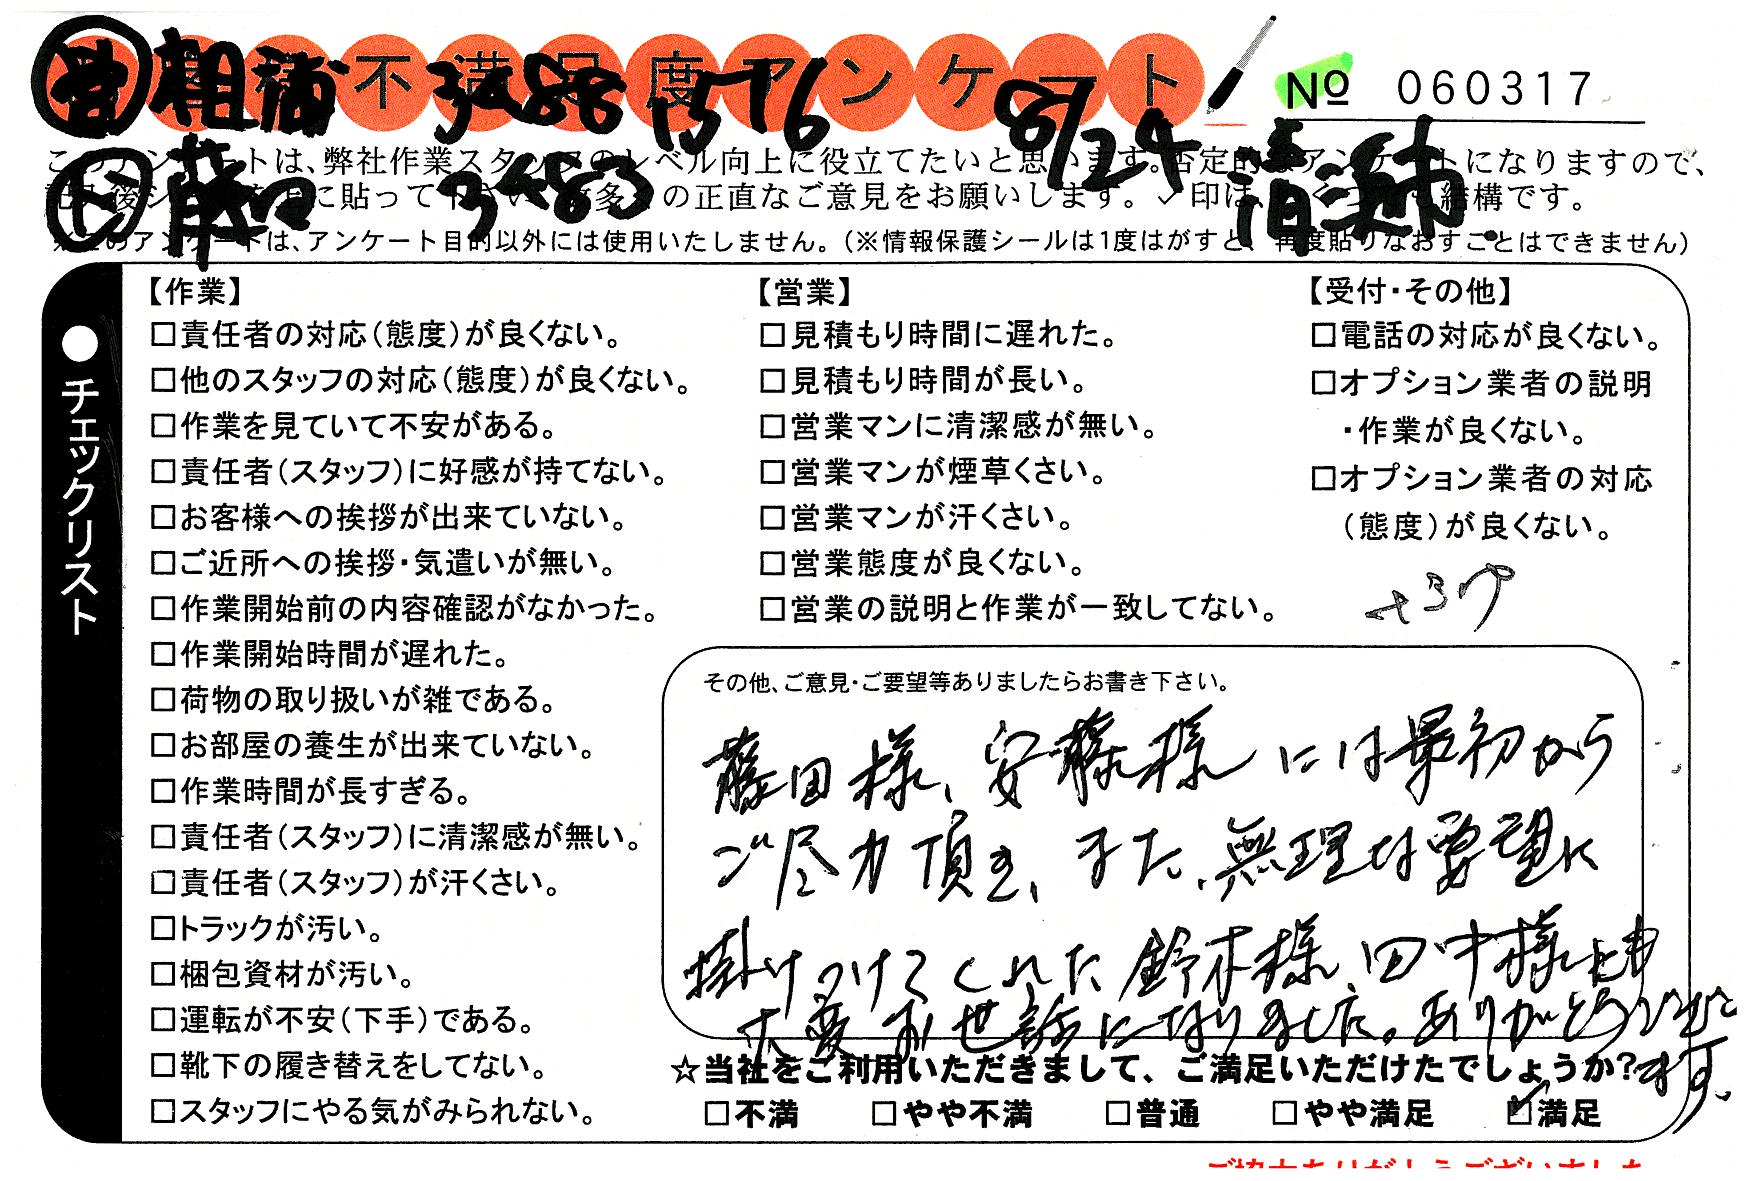 不満足度アンケート
№ 060317
営 相浦 3×88 15T6 8/24
このアンケートは、弊社作業スタッフのレベル向上に役立てたいと思います。否定的なアンケートになりますので、
に貼って下さい 多くの正直なご意見をお願いします。✓印は、いくつでも結構です。
3×83
※このアンケートは、アンケート目的以外には使用いたしません。(※情報保護シールは1度はがすと、再度貼りなおすことはできません)
●チェックリスト
【作業】
□責任者の対応(態度)が良くない。
□他のスタッフの対応(態度)が良くない。
□作業を見ていて不安がある。
□責任者(スタッフ)に好感が持てない。
□お客様への挨拶が出来ていない。
□ご近所への挨拶・気遣いが無い。
□作業開始前の内容確認がなかった。
□作業開始時間が遅れた。
□荷物の取り扱いが雑である。
□お部屋の養生が出来ていない。
□作業時間が長すぎる。
□責任者(スタッフ)に清潔感が無い。
□責任者(スタッフ)が汗くさい。
□トラックが汚い。
□梱包資材が汚い。
□運転が不安(下手)である。
□靴下の履き替えをしてない。
□スタッフにやる気がみられない。
【営業】
□見積もり時間に遅れた。
□見積もり時間が長い。
□営業マンに清潔感が無い。
□営業マンが煙草くさい。
□営業マンが汗くさい。
□営業態度が良くない。
□営業の説明と作業が一致してない。
【受付・その他】
□電話の対応が良くない。
□オプション業者の説明
・作業が良くない。
□オプション業者の対応
(態度)が良くない。
その他、ご意見・ご要望等ありましたらお書き下さい。
藤田様、安藤様には最初から
ご尽力頂き、また、無理な要望に
掛けつけてくれた鈴木様 田中様とも
大変お世話になりました。ありがとうございます。
☆当社をご利用いただきまして、ご満足いただけたでしょうか?
□不満 □やや不満 □普通 □やや満足 ☑満足
ご協力ありがとうございました